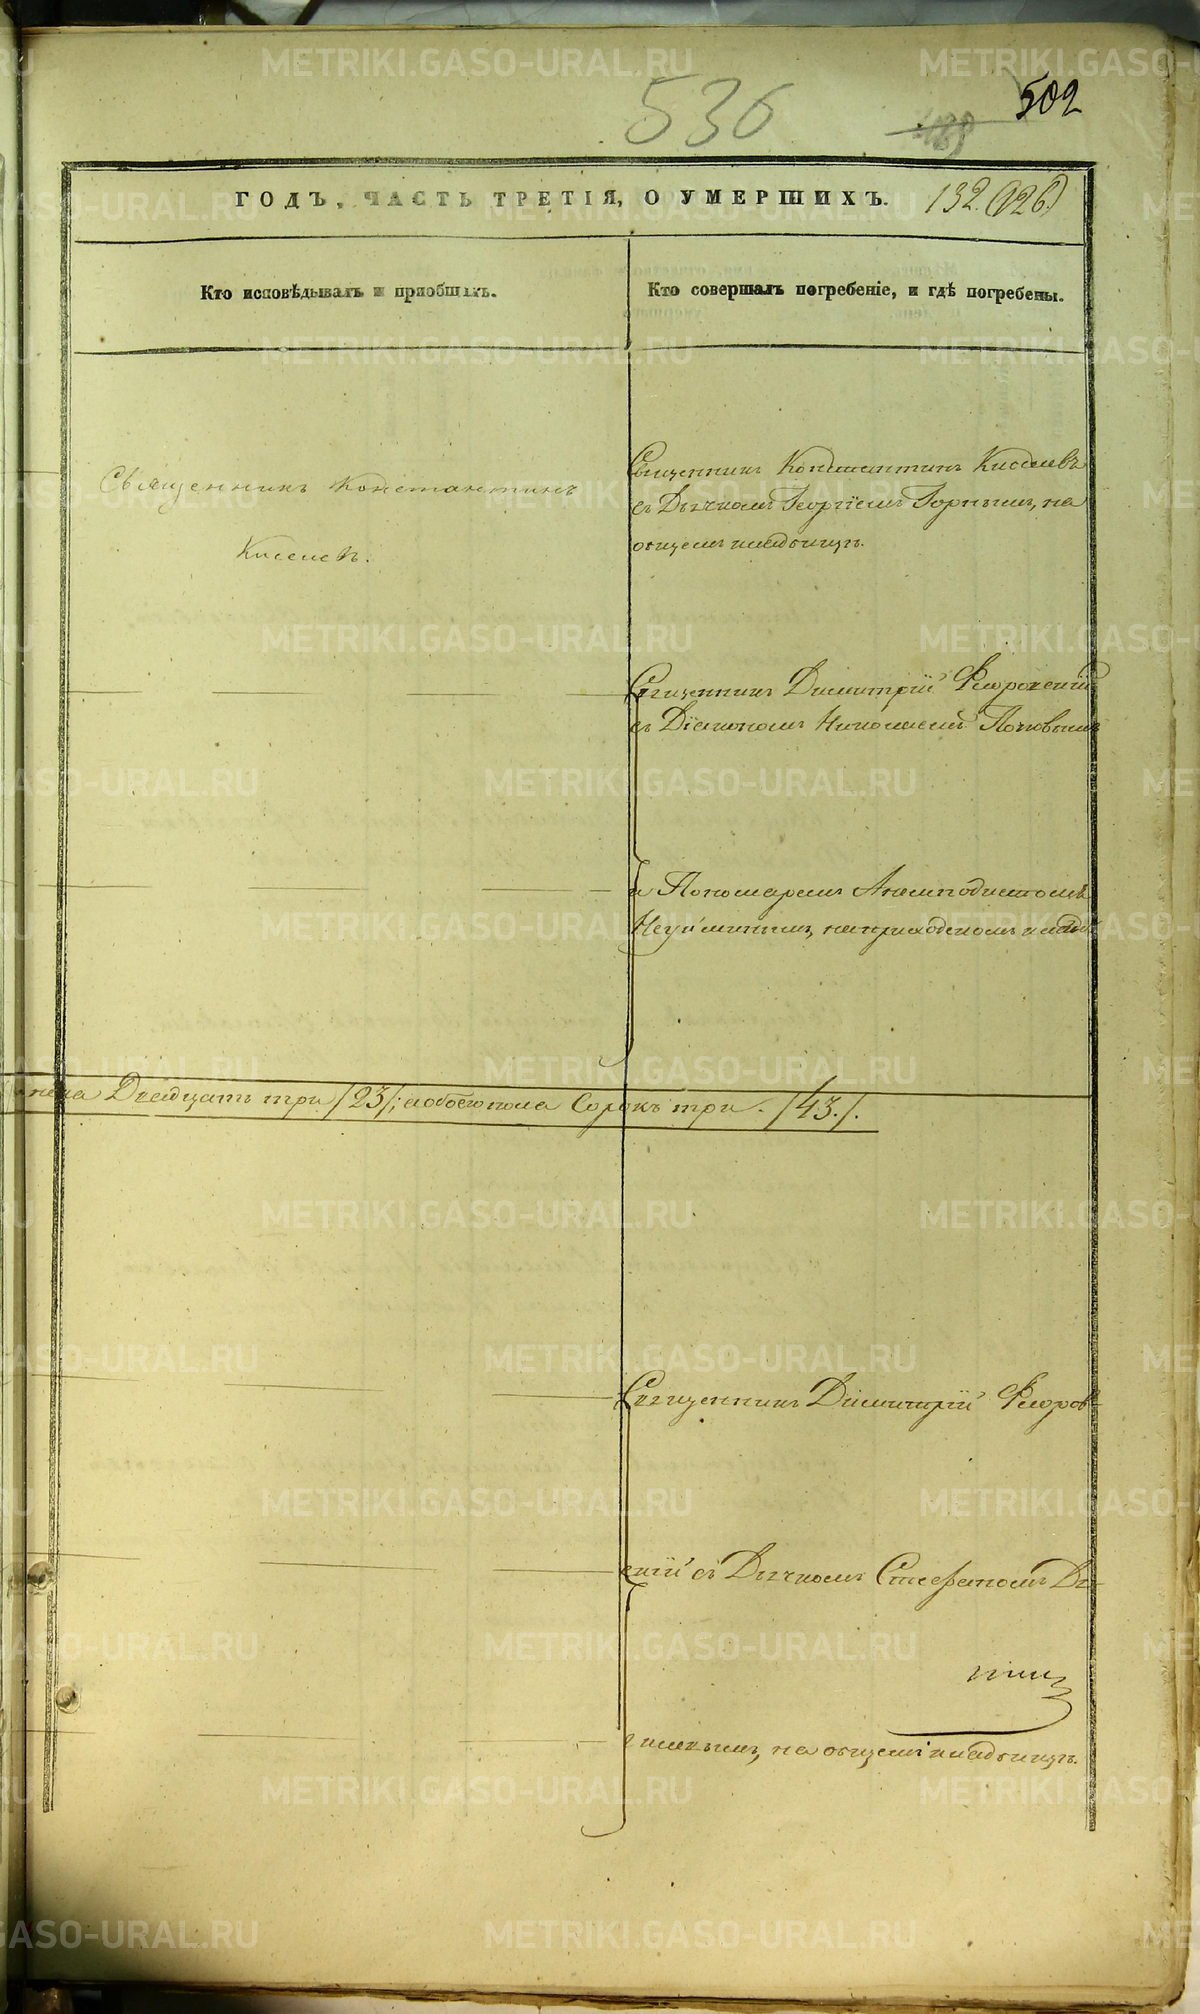 536
502
189
ГОДЪ, ЧАСТЬ ТРЕТІЯ, О УМЕРШИХЪ. 132. (126)
Кто исповѣдывалъ и пріобщалъ.
Кто совершалъ погребеніе, и гдѣ погребены.
Священникъ Константинъ
Киселевъ.
Священникъ Константинъ Киселевъ
съ Дьячкомъ Георгіемъ Горнымъ, на
общемъ кладбищѣ.
Священникъ Димитрій Флоровскій
съ Діакономъ Николаемъ Поповымъ
и Пономаремъ Анемподистомъ
Неуйминымъ, на приходскомъ кладб
пола Двадцать три /23/; а обоего пола Сорокъ три. /43./.
Священникъ Димитрій Флоров-
скій съ Дьячкомъ Стефаномъ Дя-
на общемъ кладбищѣ.
METRIKI.GASO-URAL.RU